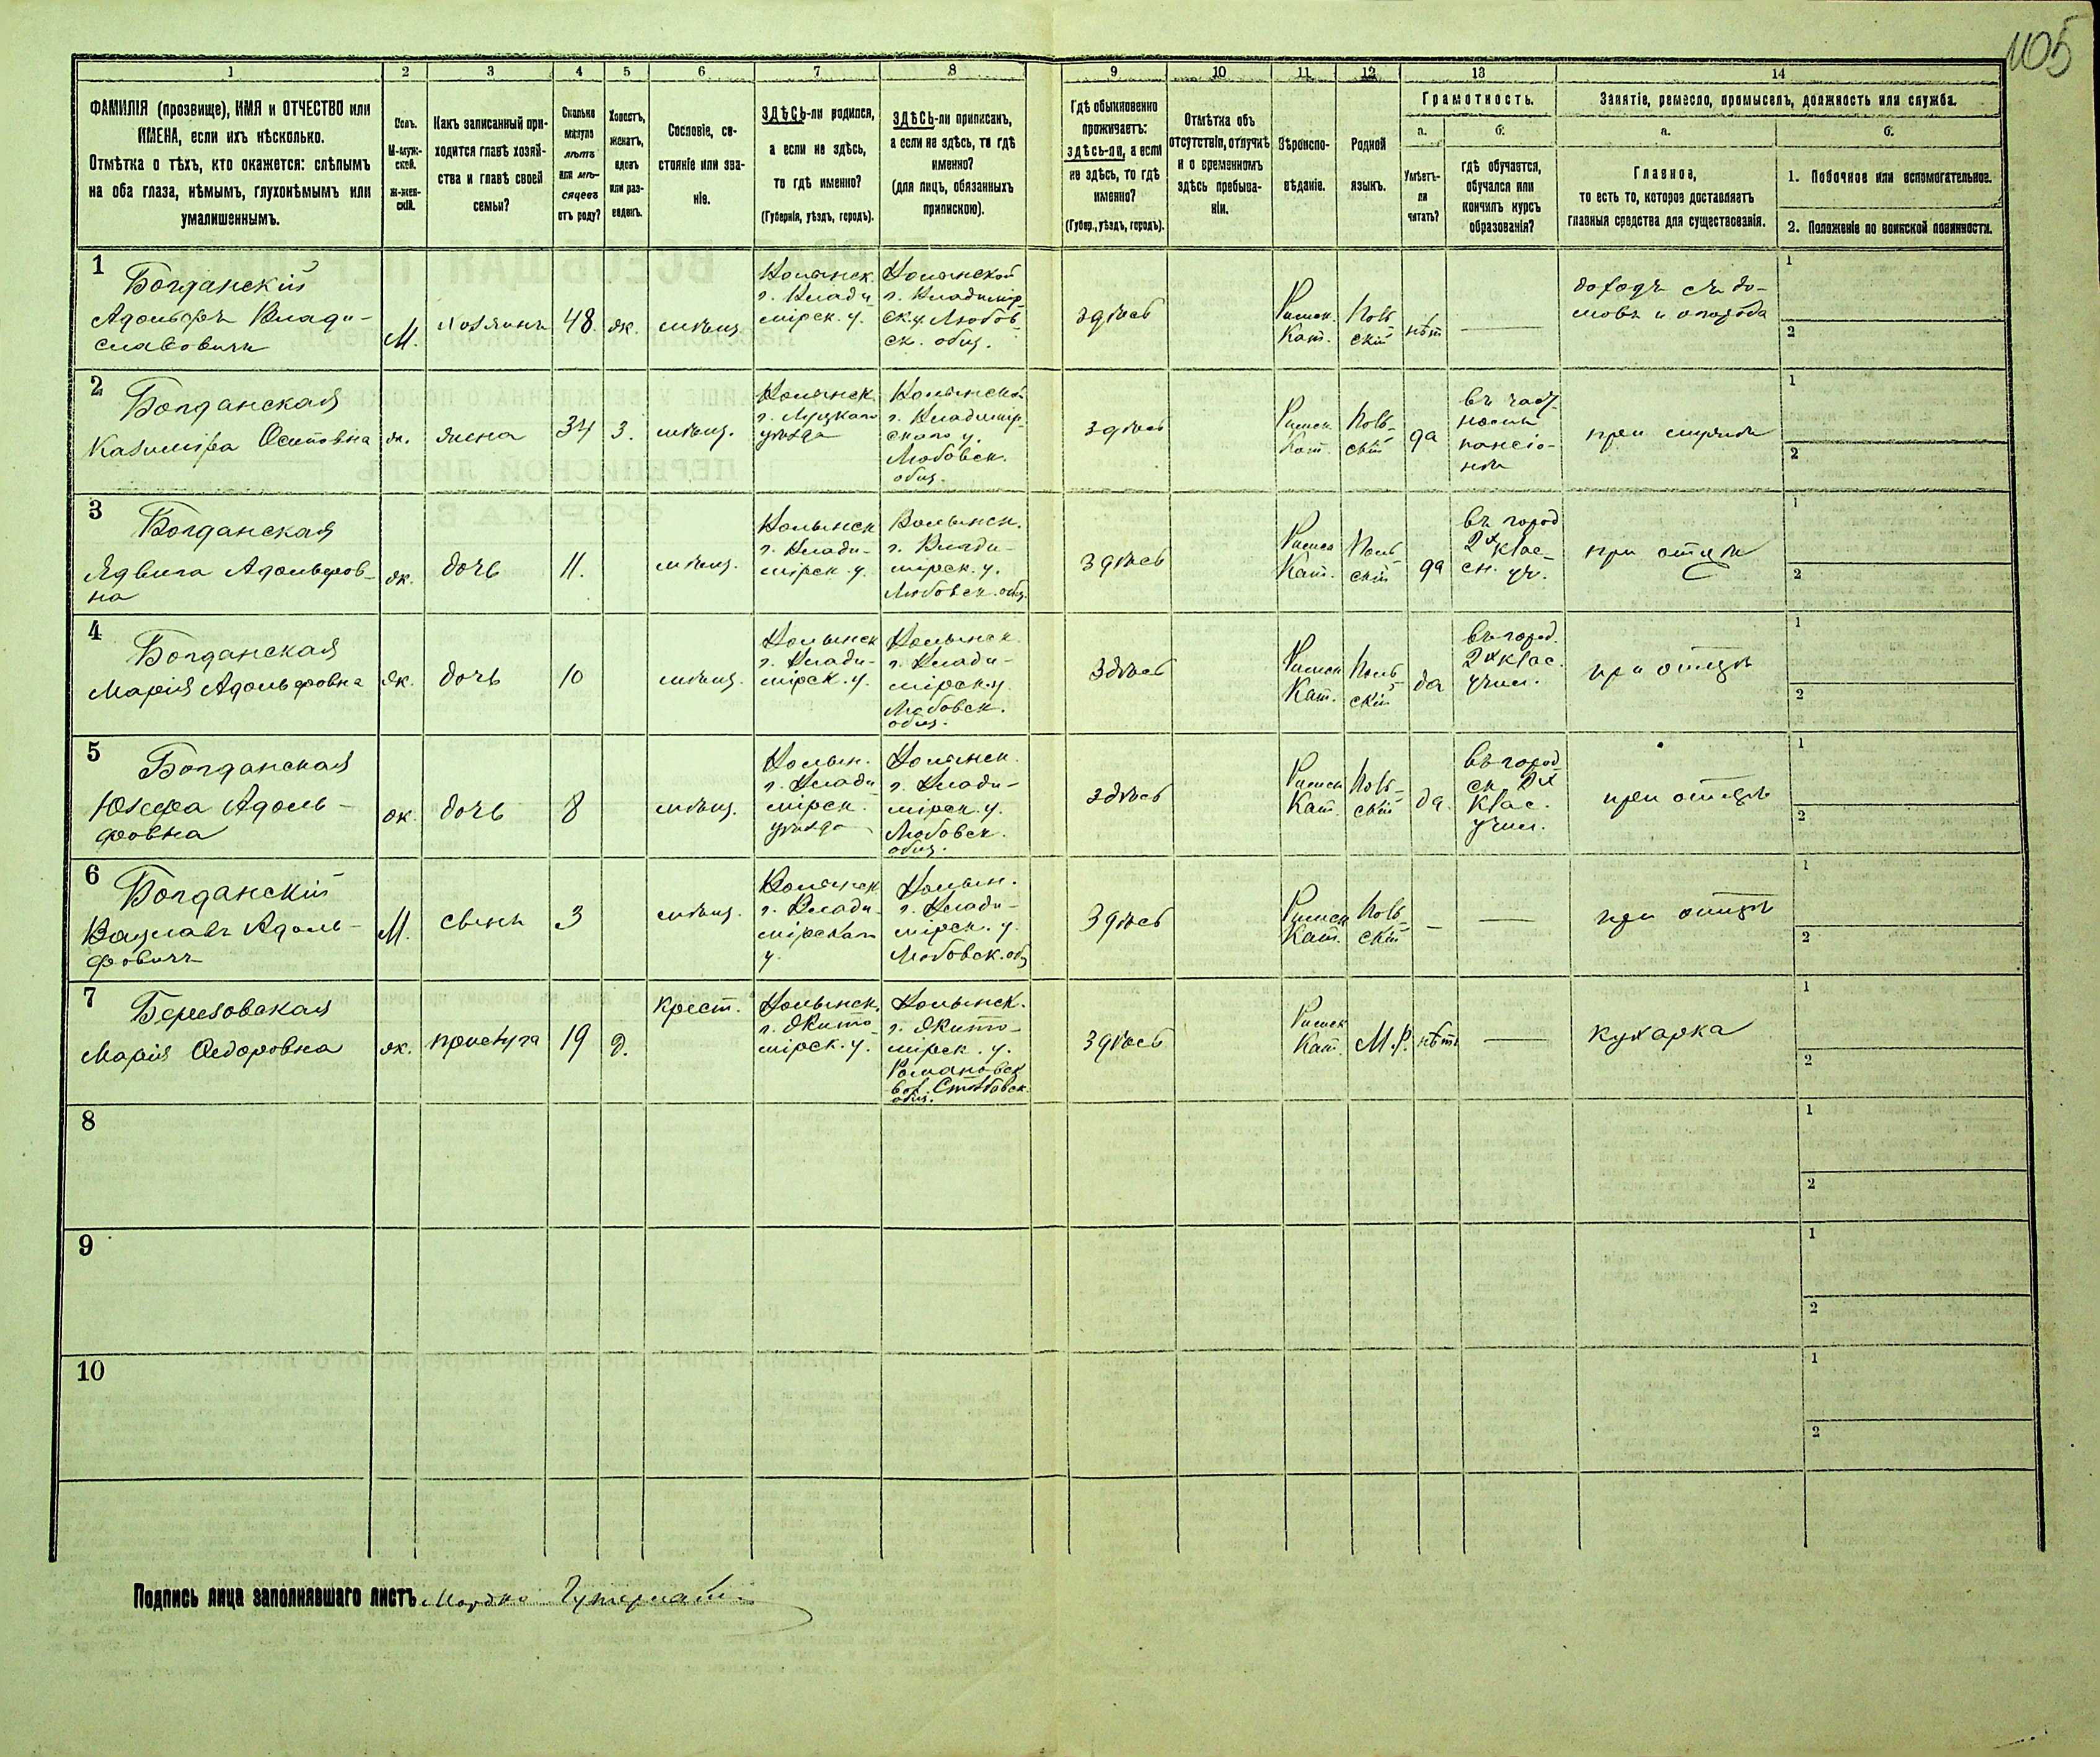 105
1 2 3 4 5 6 7 8 9 10 11 12 13 14
ФАМИЛІЯ (прозвище), ИМЯ и ОТЧЕСТВО или
ИМЕНА, если ихъ нѣсколько.
Отмѣтка о тѣхъ, кто окажется: слѣпымъ
на оба глаза, нѣмымъ, глухонѣмымъ или
умалишеннымъ.
Полъ.
М-муж-
ской.
Ж-жен-
скій.
Какъ записанный при-
ходится главѣ хозяй-
ства и главѣ своей
семьи?
Сколько
минуло
лѣтъ
или мѣ-
сяцевъ
отъ роду?
Холостъ,
женатъ,
вдовъ
или раз-
веденъ.
Сословіе, со-
стояніе или зва-
ніе.
ЗДѢСЬ-ли родился,
а если не здѣсь,
то гдѣ именно?
(Губернія, уѣздъ, городъ).
ЗДѢСЬ-ли приписанъ,
а если не здѣсь, то гдѣ
именно?
(для лицъ, обязанныхъ
припискою).
Гдѣ обыкновенно
проживаетъ:
здѣсь-ли, а если
не здѣсь, то гдѣ
именно?
(Губер., уѣздъ, городъ).
Отмѣтка объ
отсутствіи, отлучкѣ
и о временномъ
здѣсь пребыва-
ніи.
Вѣроиспо-
вѣданіе.
Родной
языкъ.
Грамотность.
а.
Умѣетъ-
ли
читать?
б.
гдѣ обучается,
обучался или
кончилъ курсъ
образованія?
Занятіе, ремесло, промыселъ, должность или служба.
а.
Главное,
то есть то, которое доставляетъ
главныя средства для существованія.
б.
1. Побочное или вспомогательное.
2. Положеніе по воинской повинности.
1
Богданскій
Адольфъ Влади-
славовичъ
М.
хозяинъ
48.
ж.
мѣщ.
Волынск.
г. Влади
мірск. у.
Волынской
г. Владимір-
ск. у. Любов-
ск. общ.
здѣсь
Римск.
Кат.
Поль
скій
нѣт
доходъ съ до-
мовъ и огорода
1
2
2
Богданская
Казиміра Осиповна
ж.
жена
34
З.
мѣщ.
Волынск.
г. Луцкаго
уѣзда
Волынской
г. Владимір-
скаго у.
Любовск.
общ.
здѣсь
Римск
Кат.
Поль-
скій
да
въ част
номъ
пансіо-
нѣ
при мужѣ
1
2
3
Богданская
Ядвига Адольфов-
на
ж.
дочь
11.
мѣщ.
Волынск
г. Влади-
мірск. у.
Волынск.
г. Влади-
мірск. у.
Любовск. общ.
здѣсь
Римск
Кат.
Поль
скій
да
въ город
2х клас-
сн. уч.
при отцѣ
1
2
4
Богданская
Марія Адольфовна
ж.
дочь
10
мѣщ.
Волынск
г. Влади-
мірск. у.
Волынск.
г. Влади-
мірск. у.
Любовск.
общ.
здѣсь
Римск
Кат.
Поль
скій
да
въ город.
2х клас.
учил.
при отцѣ
1
2
5
Богданская
Юзефа Адоль-
фовна
ж.
дочь
8
мѣщ.
Волын.
г. Влади-
мірск.
уѣзда
Волынск.
г. Влади-
мірск. у.
Любовск.
общ.
здѣсь
Римск
Кат.
Поль-
скій
да
въ город
ск. 2х
клас.
учил.
при отцѣ
1
2
6
Богданскій
Вацлавъ Адоль-
фовичъ
М.
сынъ
3
мѣщ.
Волынск
г. Влади-
мірскаго
у.
Волын.
г. Влади-
мірск. у.
Любовск. общ
здѣсь
Римск
Кат.
Поль-
скій
при отцѣ
1
2
7
Березовская
Марія Ѳедоровна
ж.
прислуга
19
д.
крест.
Волынск.
г. Жито-
мірск. у.
Волынск.
г. Жито-
мірск. у.
Романовск
вол.
общ.
здѣсь
Римск
Кат.
М.Р.
нѣтъ
кухарка
1
2
8
1
2
9
1
2
10
1
2
Подпись лица заполнявшаго листъ Мордко